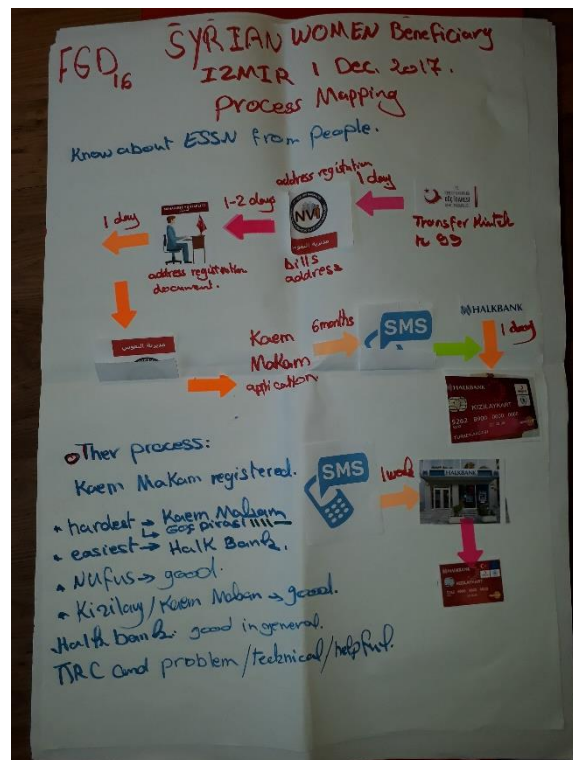 FGD16
SYRIAN WOMEN Beneficiary
IZMIR 1 Dec. 2017.
Process Mapping
Know about ESSN from people.
address registration
1 day
1-2 days
1 day
NVI
Transfer Kimlik
to 99
bills
address
address registration
document.
Kaem
Makam
application
6 months
SMS
HALKBANK
1 day
HALKBANK
KIZILAYKART
Other process:
Kaem Makam registered.
SMS
1 week
HALKBANK
* hardest → Kaem Makam
↳ Goç
* easiest → Halk Bank.
* Nufus → good.
* Kizilay / Kaem Makam → good.
Halk bank: good in general.
TRC card problem / technical / helpful.